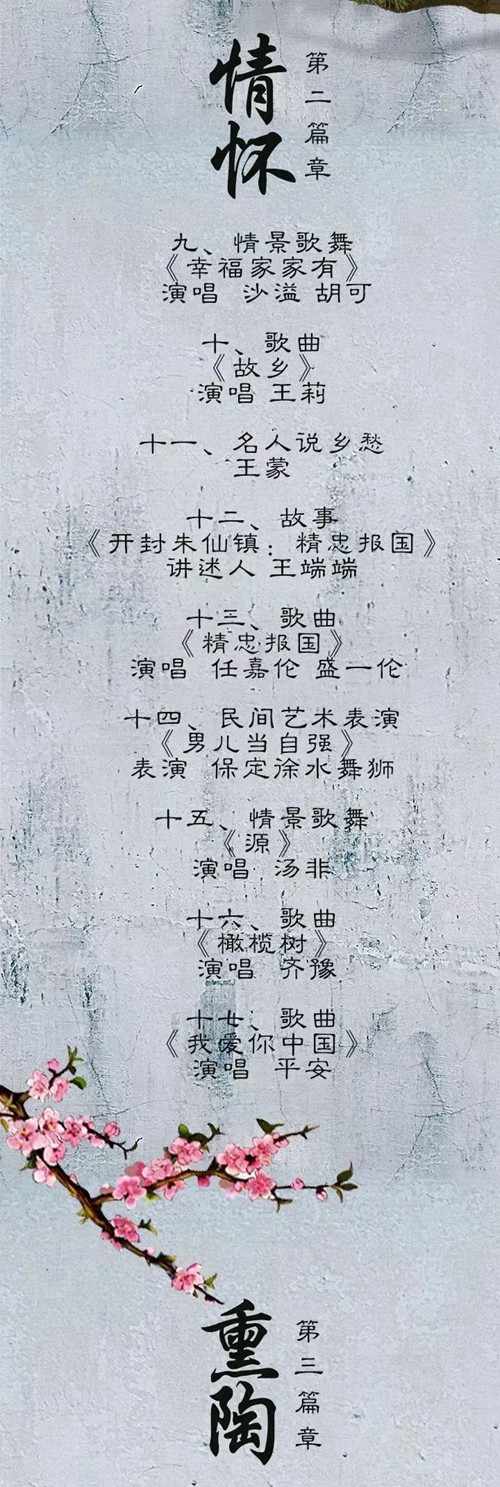 情怀
第二篇章
九、情景歌舞
《幸福家家有》
演唱 沙溢 胡可
十、歌曲
《故乡》
演唱 王莉
十一、名人说乡愁
王蒙
十二、故事
《开封朱仙镇：精忠报国》
讲述人 王端端
十三、歌曲
《精忠报国》
演唱 任嘉伦 盛一伦
十四、民间艺术表演
《男儿当自强》
表演 保定徐水舞狮
十五、情景歌舞
《源》
演唱 汤非
十六、歌曲
《橄榄树》
演唱 齐豫
十七、歌曲
《我爱你中国》
演唱 平安
熏陶
第三篇章